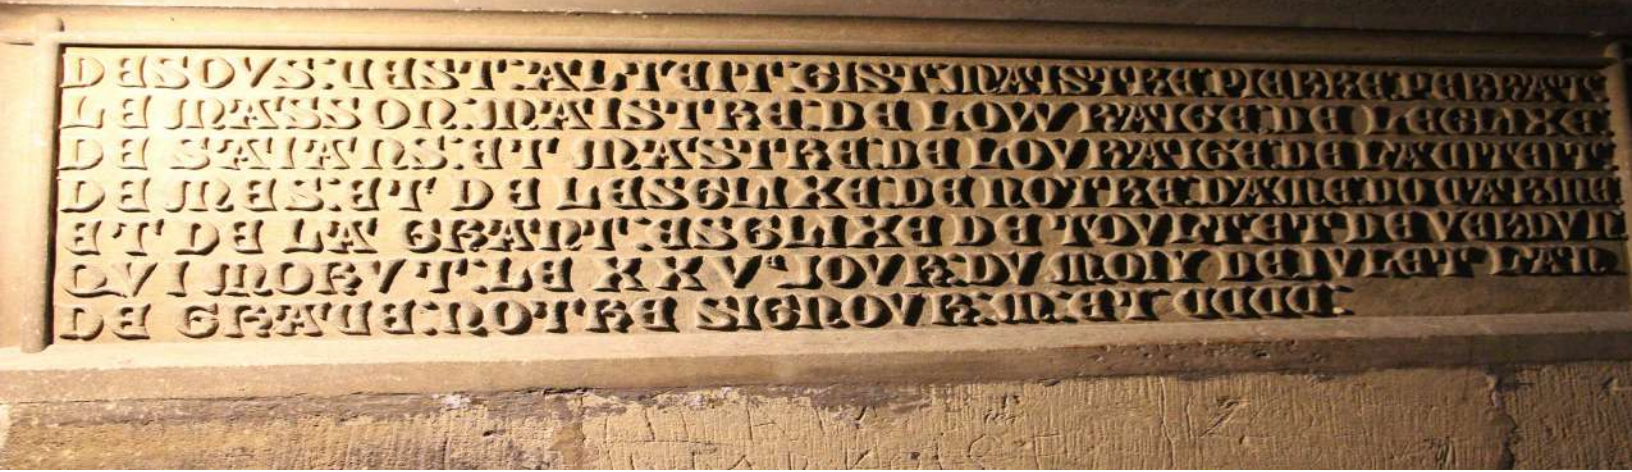 DESOVS : CEST : ALTEIT : GIST : MAISTRE : PIERRE : PERRAT :
LE MASSON : MAISTRE : DE LOWRAIGE : DE LEGLIXE :
DE SAIANS : ET MASTRE : DE LOVRAIGE : DE LA CITEIT :
DE MES : ET DE LESGLIXE : DE NOTRE : DAME : DO CARME :
ET DE LA GRANT : ESGLIXE DE TOVLT : ET DE VERDVN
QVI MORVT : LE XXVe JOVR : DV MOIY DE IVLET LAN
DE GRACE : NOTRE SIGNOVR : M : ET CCCC :